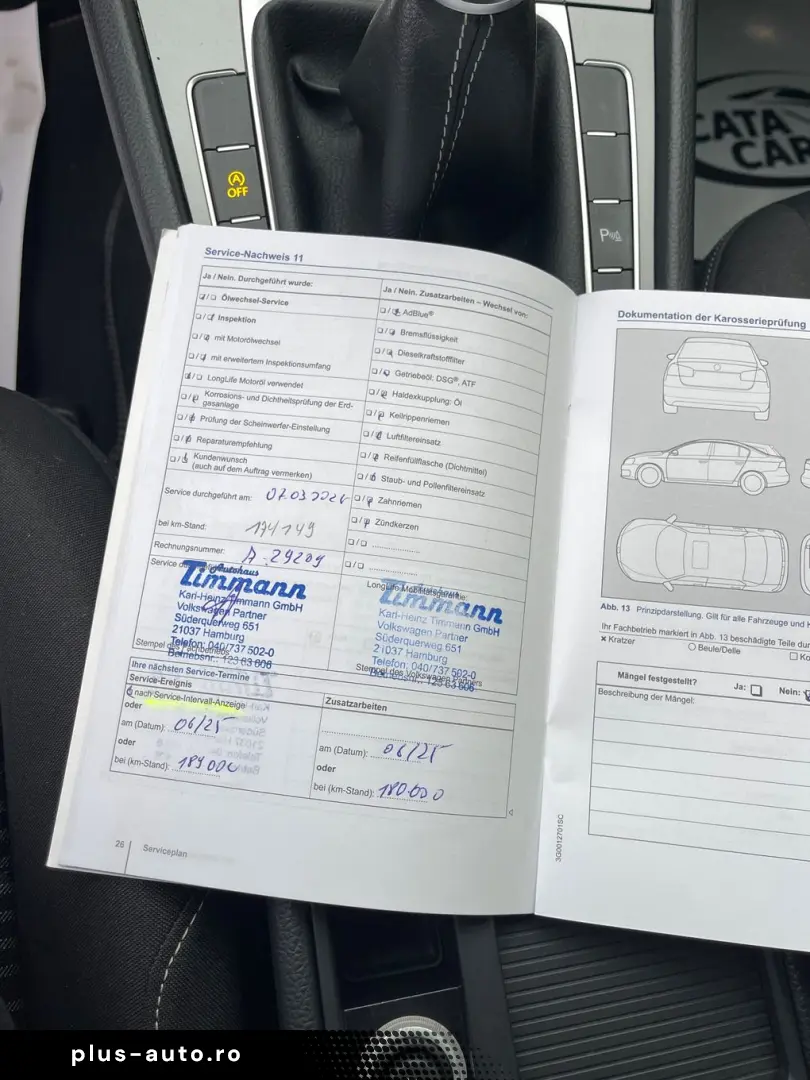 OFF
CATA
CAR
Service-Nachweis 11
Ja / Nein. Durchgeführt wurde:
Ölwechsel-Service
Inspektion
mit Motorölwechsel
mit erweitertem Inspektionsumfang
LongLife Motoröl verwendet
Korrosions- und Dichtheitsprüfung der Erd-
gasanlage
Prüfung der Scheinwerfer-Einstellung
Reparaturempfehlung
Kundenwunsch
(auch auf dem Auftrag vermerken)
Service durchgeführt am: 07.03.2024
bei km-Stand: 174149
Rechnungsnummer: A.29209
Ja / Nein. Zusatzarbeiten – Wechsel von:
AdBlue®
Bremsflüssigkeit
Dieselkraftstofffilter
Getriebeöl: DSG®, ATF
Haldexkupplung: Öl
Keilrippenriemen
Luftfiltereinsatz
Reifenfüllflasche (Dichtmittel)
Staub- und Pollenfiltereinsatz
Zahnriemen
Zündkerzen
Autohaus
Timmann
Karl-Heinz Timmann GmbH
Volkswagen Partner
Süderquerweg 651
21037 Hamburg
Telefon: 040/737 502-0
Betriebsnr.: 123 63 606
Stempel des Fachbetriebs
LongLife Mobilitätsgarantie:
Autohaus
Timmann
Karl-Heinz Timmann GmbH
Volkswagen Partner
Süderquerweg 651
21037 Hamburg
Telefon: 040/737 502-0
Betriebsnr.: 123 63 606
Stempel des Volkswagen Partners
Ihre nächsten Service-Termine
Service-Ereignis
nach Service-Intervall-Anzeige
oder
am (Datum): 06/25
oder
bei (km-Stand): 189000
Zusatzarbeiten
am (Datum): 06/25
oder
bei (km-Stand): 180.000
26
Serviceplan
3G0012701SC
Dokumentation der Karosserieprüfung
Abb. 13 Prinzipdarstellung. Gilt für alle Fahrzeuge und
Ihr Fachbetrieb markiert in Abb. 13 beschädigte Teile
x Kratzer
Beule/Delle
Mängel festgestellt? Ja: Nein:
Beschreibung der Mängel:
plus-auto.ro